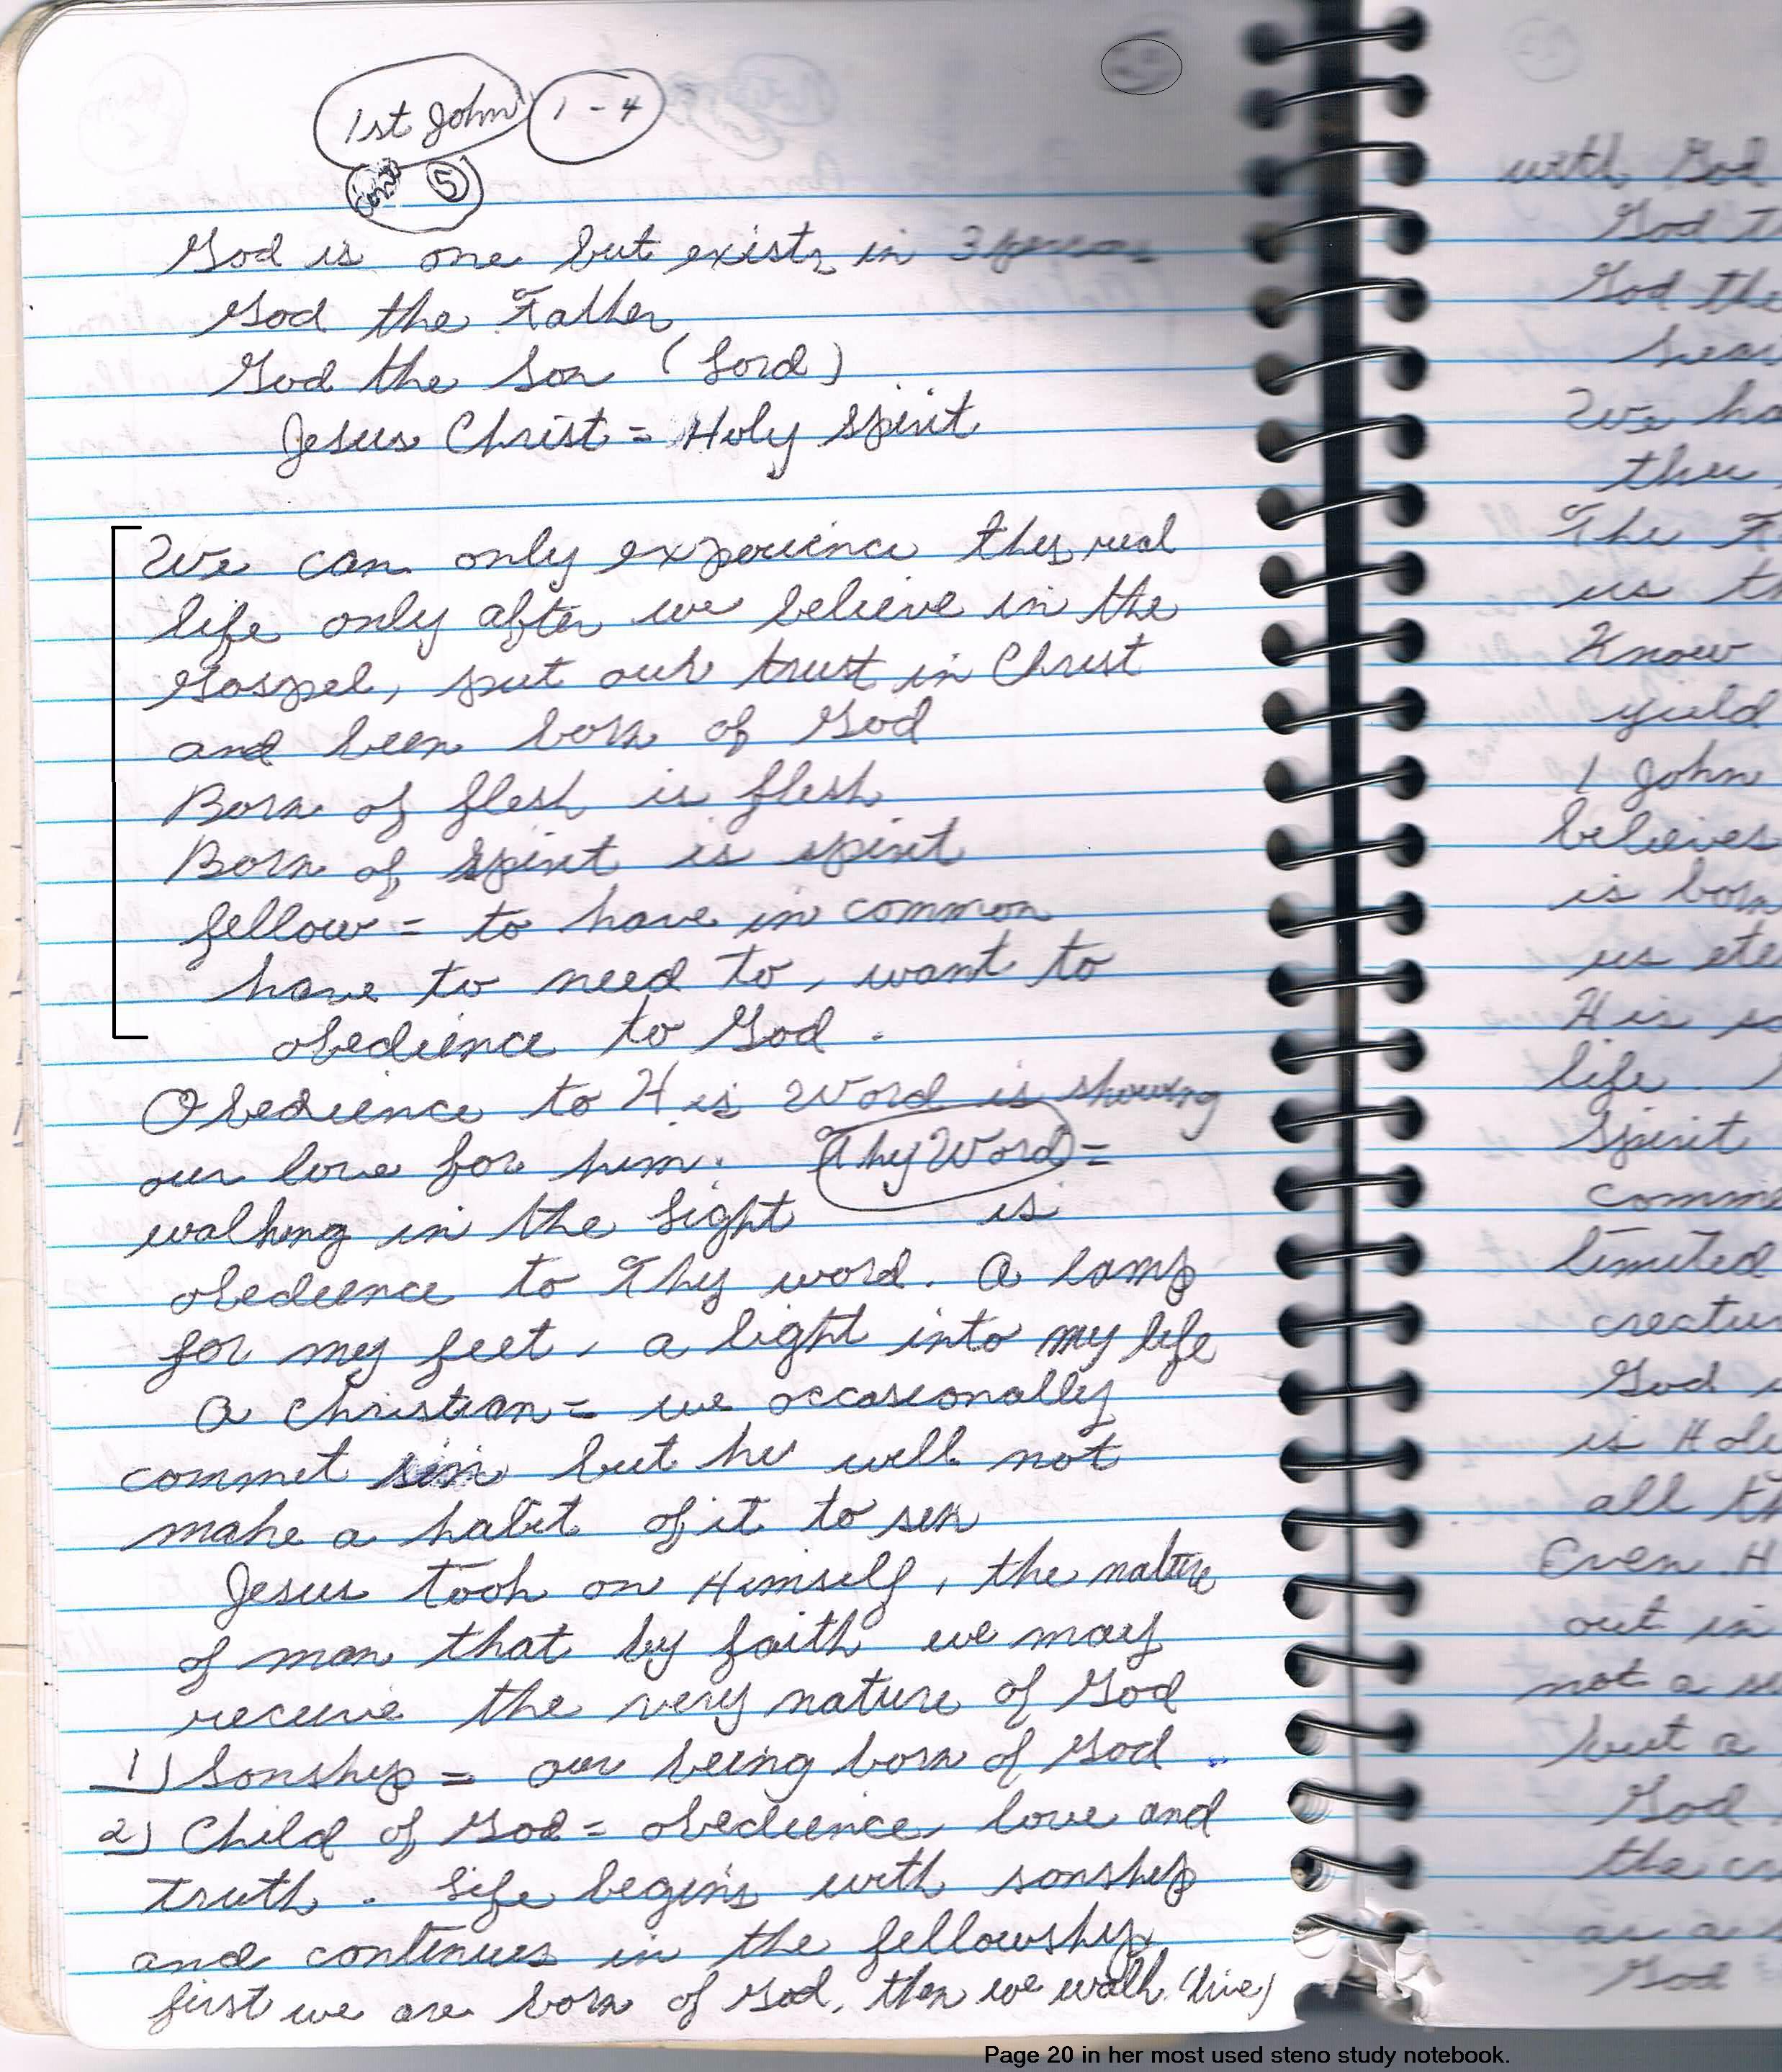 1st John 1 - 4
5
God is one but exists in 3 persons
God the Father
God the Son (Lord)
Jesus Christ = Holy Spirit
We can only experience this real
life only after we believe in the
Gospel, put our trust in Christ
and been born of God
Born of flesh is flesh
Born of spirit is spirit
fellow = to have in common
have to need to, want to
obedience to God.
Obedience to His Word is showing
our love for him. Thy Word =
walking in the Light is
obedience to Thy word. A lamp
for my feet, a light into my life
A Christian = we occasionally
commet sin but he will not
make a habit of it to sin
Jesus took on Himself, the nature
of man that by faith we may
receive the very nature of God
1) Sonship = our being born of God
2) Child of God = obedience, love and
truth. Life begins with sonship
and continues in the fellowship
first we are born of God, then we walk (live)
with God
God
God the
We ha
thu
The F
us th
Know
yield
1 John
believes
is born
us ete
His
life.
Spirit
comme
limited
creatur
God
is Hol
all th
Even H
out in
not a
but a
God
the cr
as a
God
Page 20 in her most used steno study notebook.